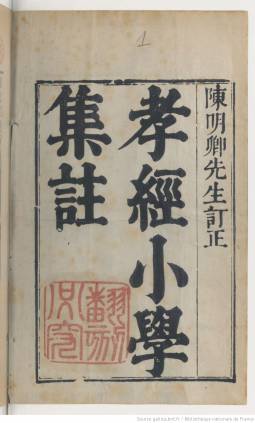 1
陳明卿先生訂正
孝經小學
集註
翻刻必究
Source gallica.bnf.fr / Bibliothèque nationale de France